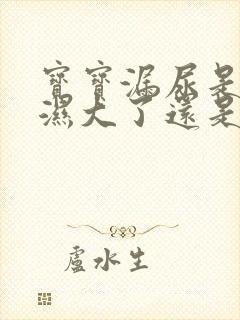 寶寶漏尿是
濕大了還是
盧水生